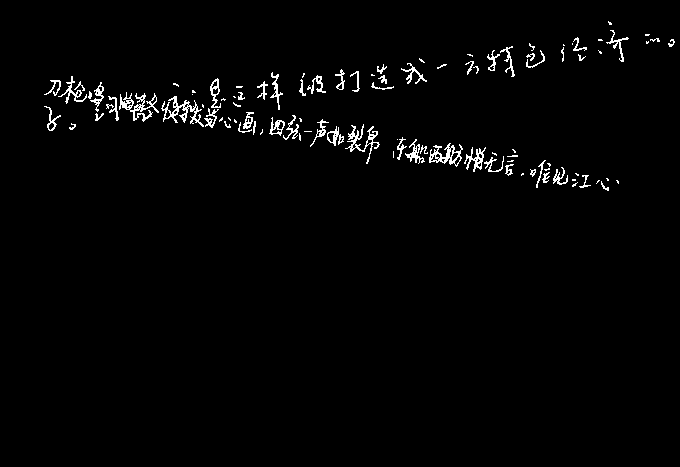 是这样被打造成一云特色经济
刀枪鸣曲终收拨当心画，四弦一声如裂帛 东船西舫悄无言，唯见江心